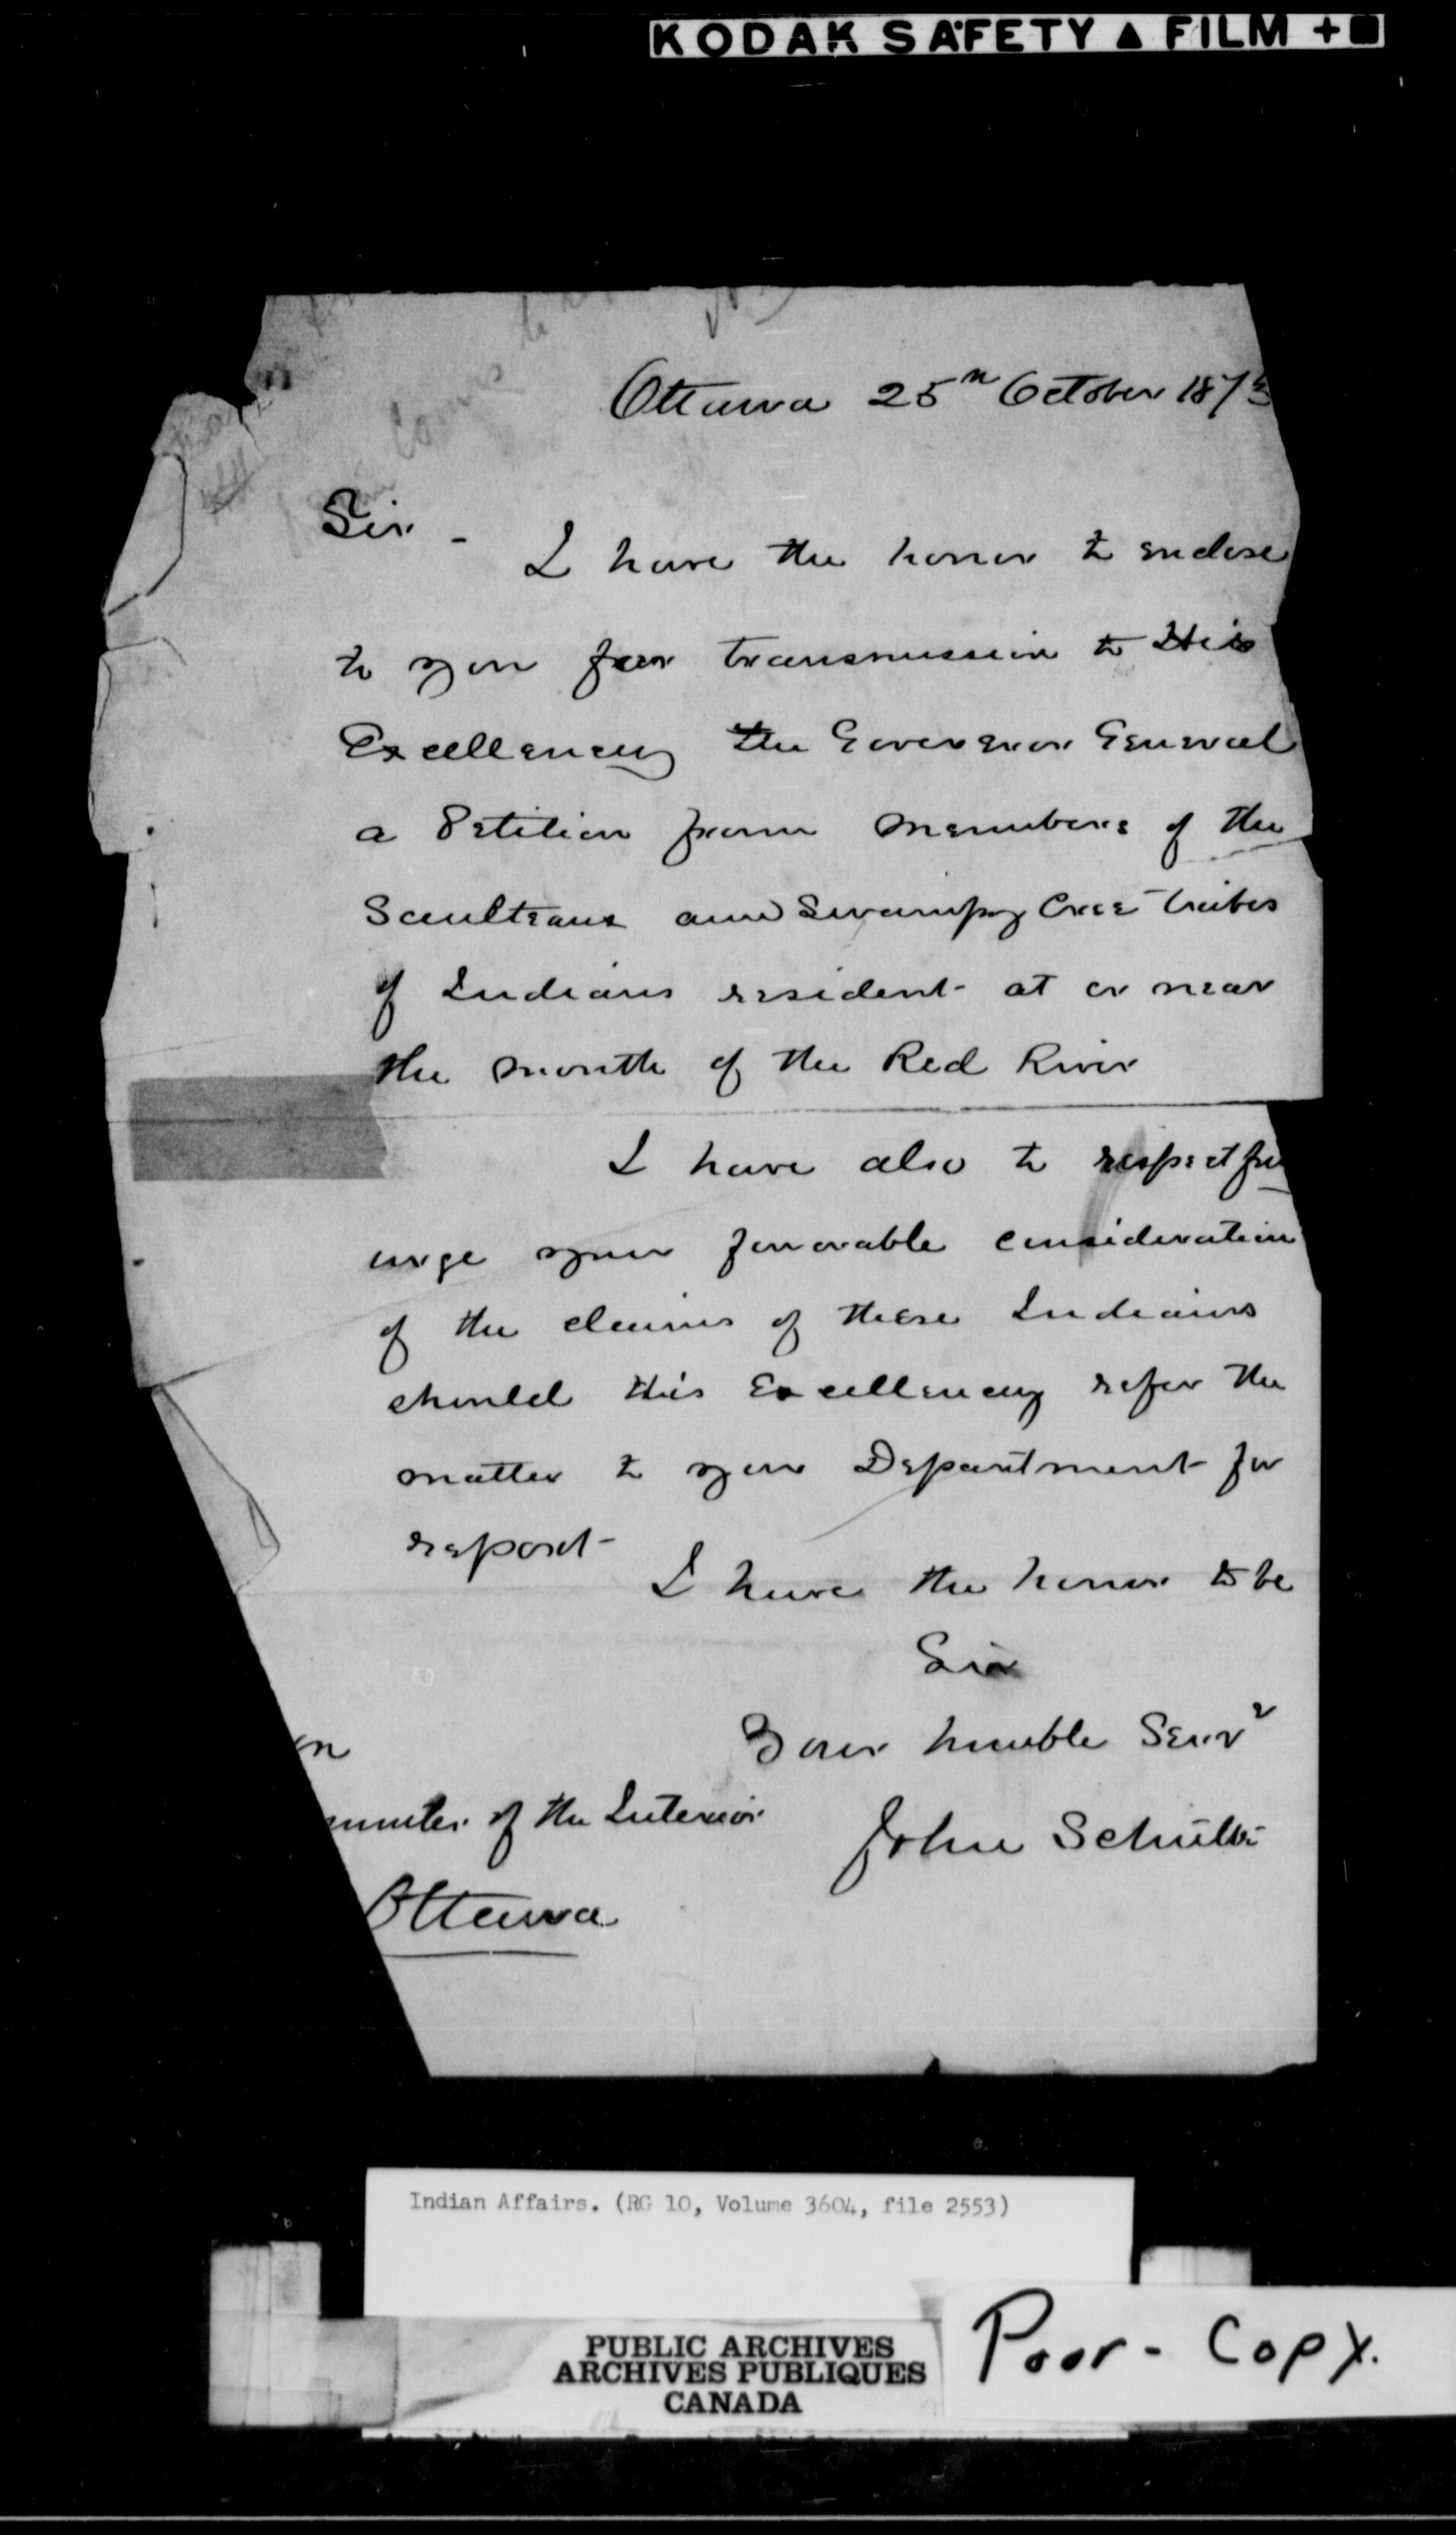 KODAK SAFETY ▲ FILM +■
Ottawa 25th October 1873
Sir -
I have the honor to enclose
to you for transmission to His
Excellency the Governor General
a Petition from members of the
Saulteaux and Swampy Cree tribes
of Indians resident at or near
the mouth of the Red River
I have also to respectfu
urge your favorable consideration
of the claims of these Indians
should His Excellency refer the
matter to your Department for
report
I have the honor to be
Sir
Your humble Servt
on
John Schultz
inister of the Interior
Ottawa
Indian Affairs. (RG 10, Volume 3604, file 2553)
PUBLIC ARCHIVES
ARCHIVES PUBLIQUES
CANADA
Poor - Copy.